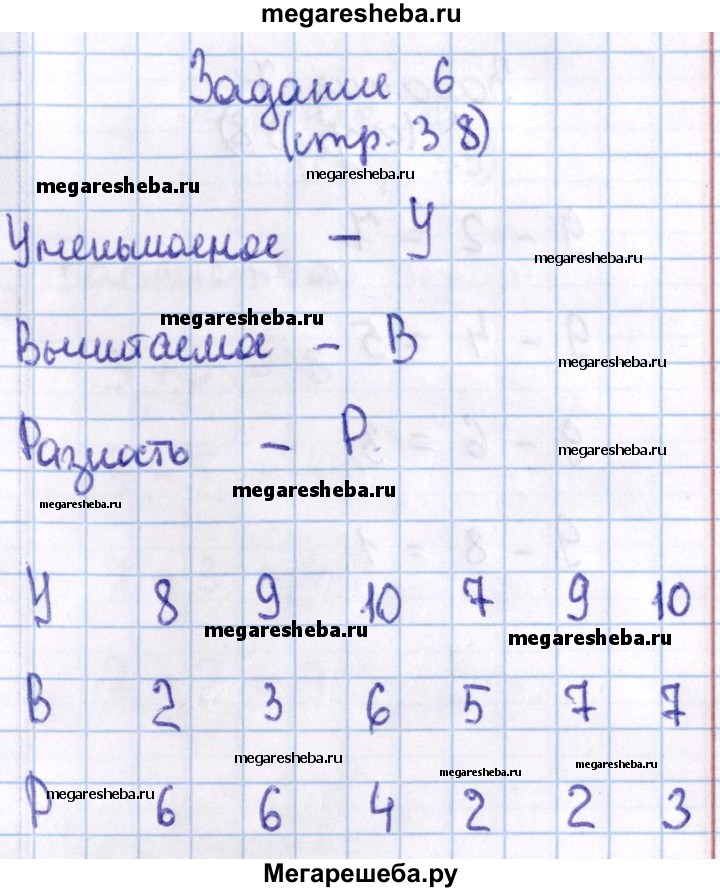 megaresheba.ru
Задание 6
(стр. 38)
megaresheba.ru
megaresheba.ru
Уменьшаемое – У
megaresheba.ru
megaresheba.ru
Вычитаемое – В
megaresheba.ru
Разность – Р
megaresheba.ru
megaresheba.ru
megaresheba.ru
У 8 9 10 7 9 10
megaresheba.ru
megaresheba.ru
В 2 3 6 5 7 7
megaresheba.ru
megaresheba.ru
megaresheba.ru
megaresheba.ru
Р 6 6 4 2 2 3
Мегарешеба.ру